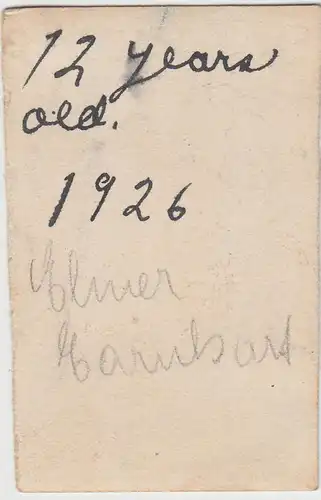 12 years
old.
1926
Elmer